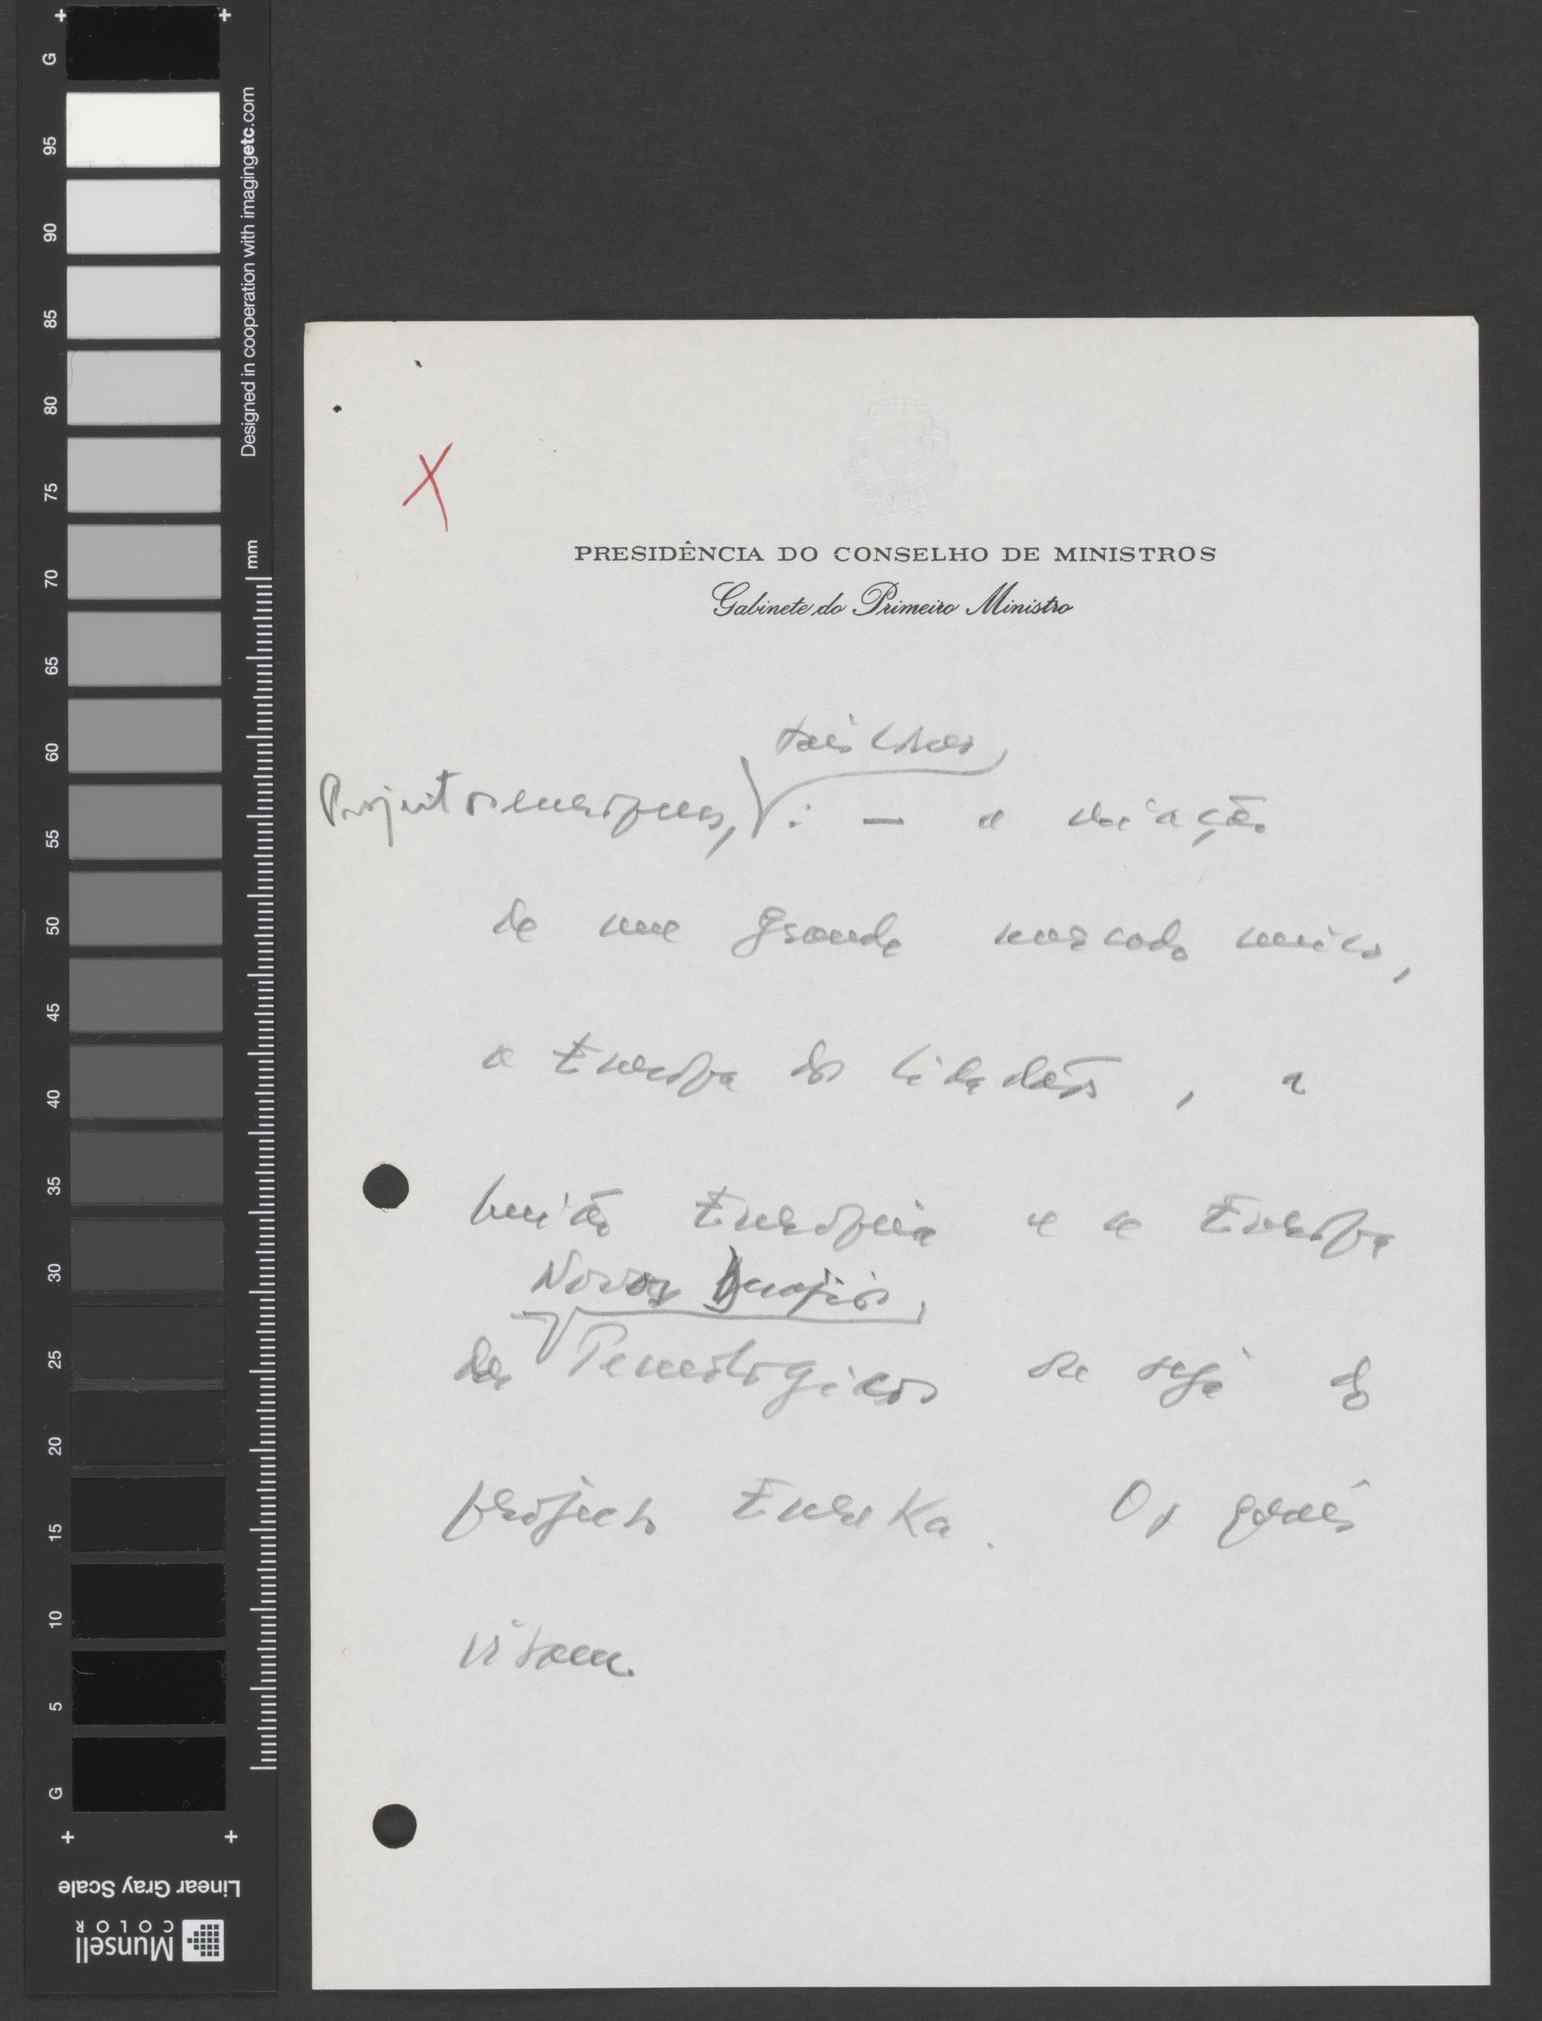 X
PRESIDÊNCIA DO CONSELHO DE MINISTROS
Gabinete do Primeiro Ministro
tais como
Projectos europeus, : — a criação
de um grande mercado único,
a Europa dos Cidadãos, a
União Europeia e a Europa
Novos Desafios,
dos Tecnológicos ou seja do
projecto Eureka. Os quais
visam
G
95
90
85
80
75
70
65
60
55
50
45
40
35
30
25
20
15
10
5
G
Designed in cooperation with imagingetc.com
mm
Linear Gray Scale
Munsell
COLOR